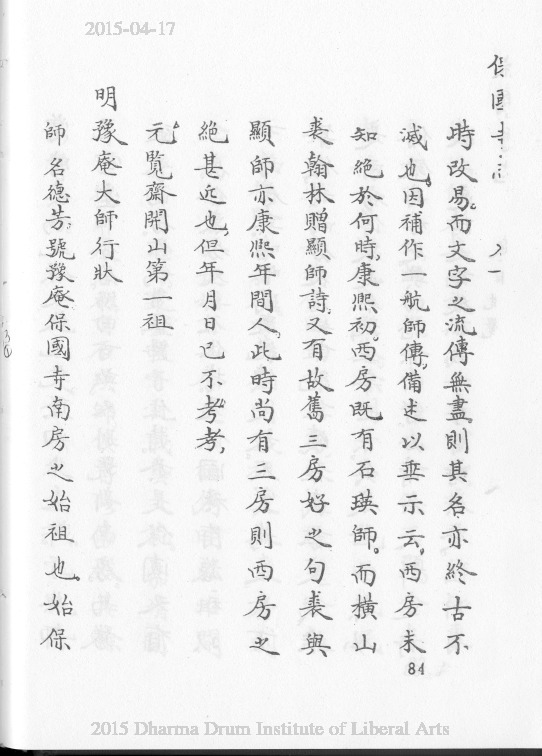 2015-04-17
保國寺志
時改易。而文字之流傳無盡。則其名亦終古不
滅也。因補作一航師傳。備述以垂示云。西房未
知絕於何時。康熙初。西房既有石瑛師。而橫山
裘翰林贈顯師詩。又有故舊三房好之句。裘與
顯師亦康熙年間人。此時尚有三房。則西房之
絕甚近也。但年月日已不考考。
元覽齋開山第一祖
明豫庵大師行狀
師名德芳。號豫庵。保國寺南房之始祖也。始保
84
2015 Dharma Drum Institute of Liberal Arts